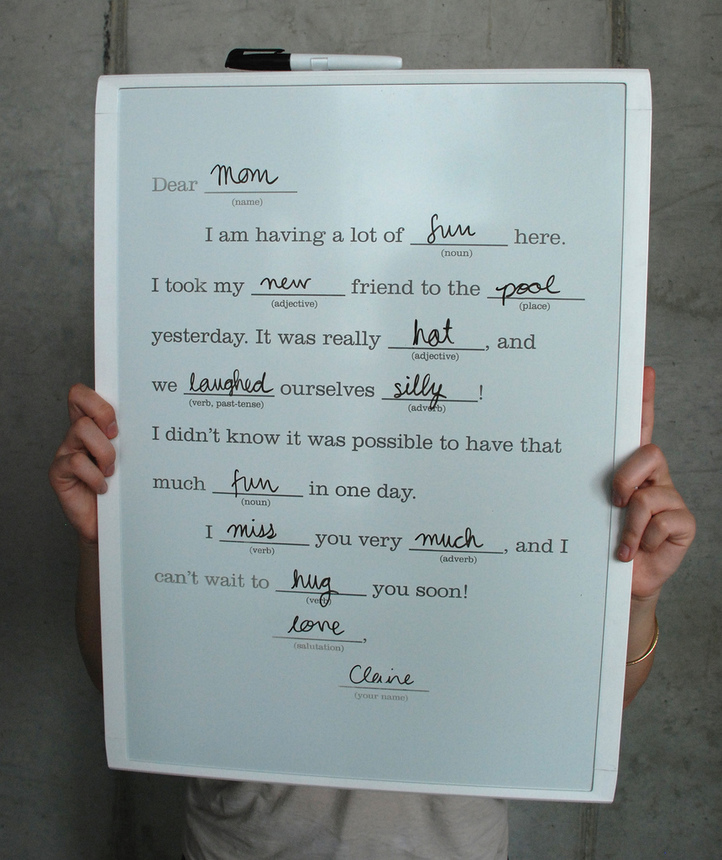 Dear Mom
(name)
I am having a lot of fun here.
(noun)
I took my new friend to the pool
(adjective) (place)
yesterday. It was really hot, and
(adjective)
we laughed ourselves silly!
(verb, past-tense) (adverb)
I didn't know it was possible to have that
much fun in one day.
(noun)
I miss you very much, and I
(verb) (adverb)
can't wait to hug you soon!
(verb)
love,
(salutation)
Claire
(your name)